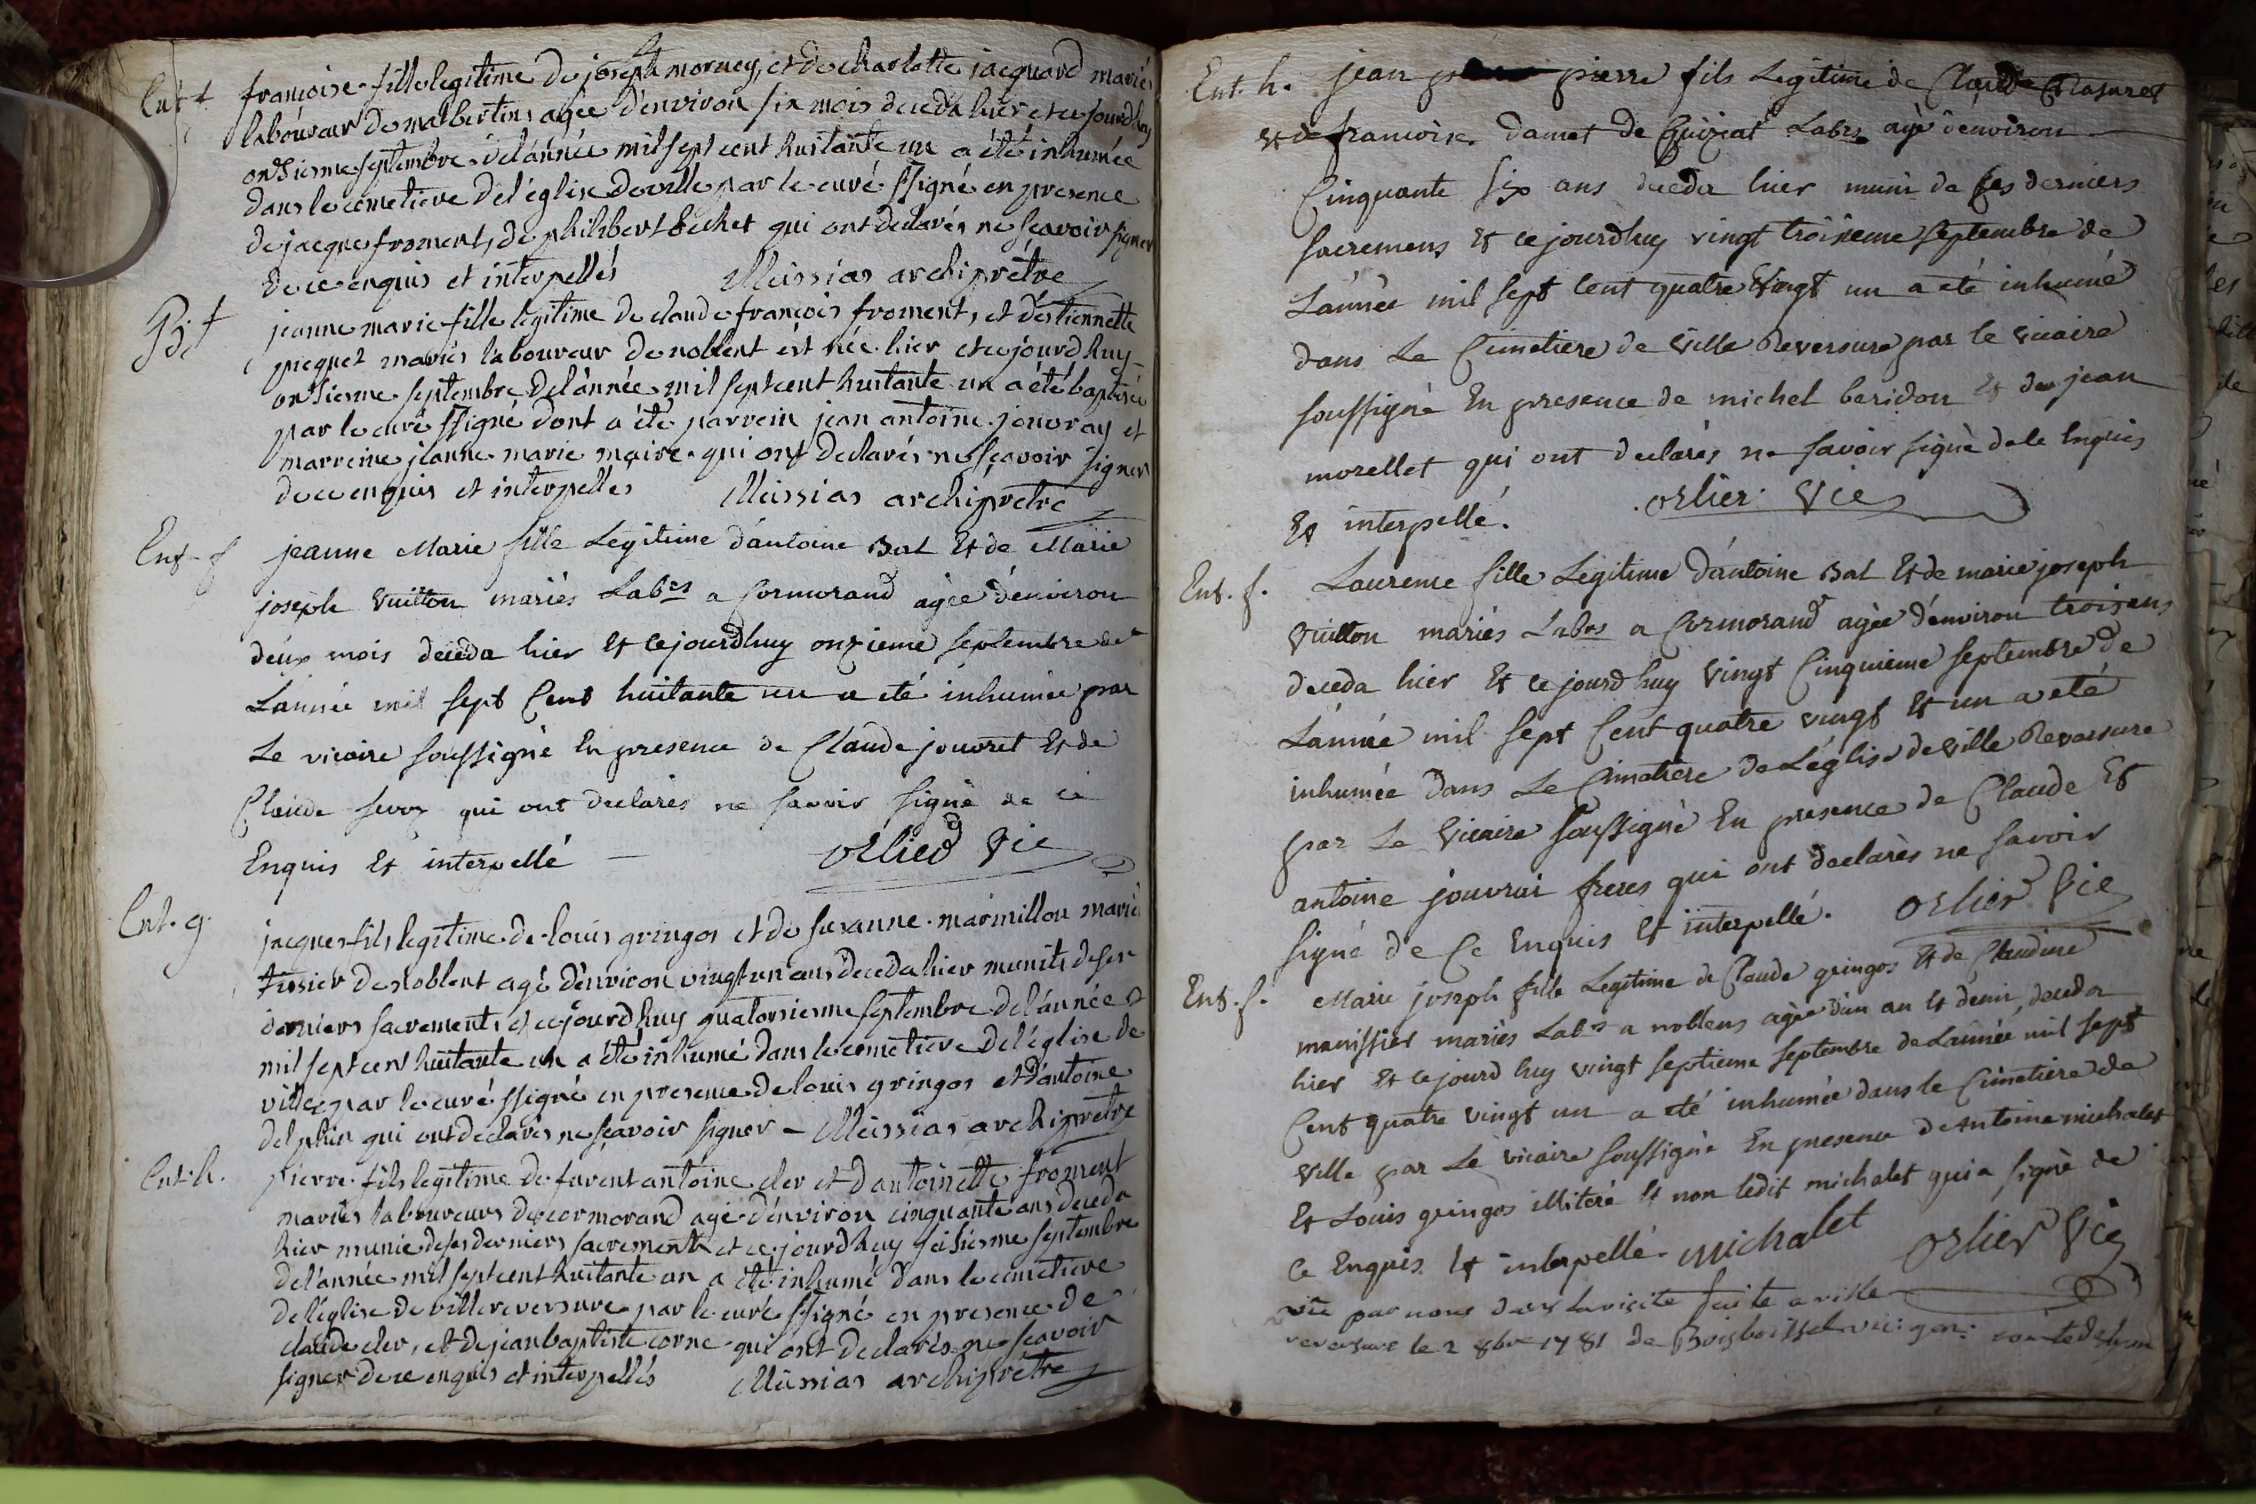 Ent. f. françoise fille legitime de joseph mornay, et de charlotte jacquard mariés
laboureur de malbertin, agée d'environ six mois deceda hier et ce jourdhuy
onsieme septembre de l'année mil sept cent huitante un a été inhumée
dans le cimetiere de l'église de ville par le curé ssigné en presence
de jacque froment, de philibert bechet qui ont declarés ne sçavoir signer
de ce enquis et interpellés Messias archiprêtre
B. f. jeanne marie fille legitime de claude françois froment, et d'estiennette
picquet mariés laboureur de noblent ést née hier et ce jourdhuy
onsieme septembre de l'année mil sept cent huitante un a été baptisée
par le curé ssigné dont a été parrein jean antoine jouvray et
marreine jeanne marie maire qui ont declarés ne sçavoir signer
de ce enquis et interpellés Messias archiprêtre
Ent. f jeanne Marie fille Legitime d'antoine Bal Et de Marie
joseph Vuitton mariés Labrs a Cormorand agée d'environ
deux mois deceda hier Et Ce jourdhuy onzieme septembre de
L'année mil sept Cent huitante un a eté inhumée par
Le vicaire soussigné En presence de Claude jouvret Et de
Claude qui ont declarés ne savoir signé de ce
Enquis Et interpellé orlier Vic
Ent. g. jacques fils legitime de louis gringos et de susanne marmillon mariés
tissier de noblent agé d'environ vingt un ans deceda hier munit de ses
derniers sacrements, et ce jourdhuy quatorsieme septembre de l'année
mil sept cent huitante un a été inhumé dans le cimetiere de l'église de
ville par le curé ssigné en presence de louis gringos et d'antoine
delphin qui ont declarés ne sçavoir signer – Messias archiprêtre
Ent. h. pierre fils legitime de furent antoine cler et d'antoinette froment
mariés laboureurs de cormorand agé d'environ cinquante ans deceda
hier munie de ses derniers sacrements et ce jourdhuy seisieme septembre
de l'année mil sept cent huitante un a été inhumé dans le cimetiere
de l'église de villereversure par le curé ssigné en presence de
claude cler, et de jean baptiste corne qui ont declarés ne sçavoir
signer de ce enquis et interpellés Messias archiprêtre
Ent. h. jean pierre fils Legitime de Claude
Et de francoise damet de Labrs agé d'environ
Cinquante six ans deceda hier muni de ses derniers
sacremens Et ce jourdhuy vingt troisieme septembre de
L'année mil sept Cent quatre Vingt un a eté inhumé
dans Le Cimetiere de Ville Reversure par le vicaire
soussigné En presence de michel beridon Et de jean
morellet qui ont declarés ne savoir signé de Ce Enquis
Et interpellé. orlier Vic
Ent. f. Laurence fille Legitime d'antoine Bal Et de marie joseph
Vuitton mariés Labrs a Cormorand agée d'environ trois ans
deceda hier Et ce jourd huy Vingt Cinquieme septembre de
L'année mil sept Cent quatre vingt Et un a eté
inhumée dans Le Cimetiere de L'église de Ville Reversure
par Le Vicaire soussigné En presence de Claude Et
antoine jouvrai freres qui ont declarés ne savoir
signé de Ce Enquis Et interpellé. orlier Vic
Ent. f. Marie joseph fille Legitime de Claude gringos Et de Claudine
manissier mariés Labrs a noblens agée d'un an Et demi, deceda
hier Et ce jourd huy vingt septieme septembre de L'année mil sept
Cent quatre vingt un a eté inhumée dans le Cimetiere de
Ville par Le vicaire soussigné En presence de Antoine michalet
Et Louis gringos illiteré Et non ledit michalet qui a signé de
Ce Enquis Et interpellé. Michalet orlier Vic
vû par nous dans la visite faite a ville
reversure le 2 8bre 1781 de Boisboissel vic: gen: